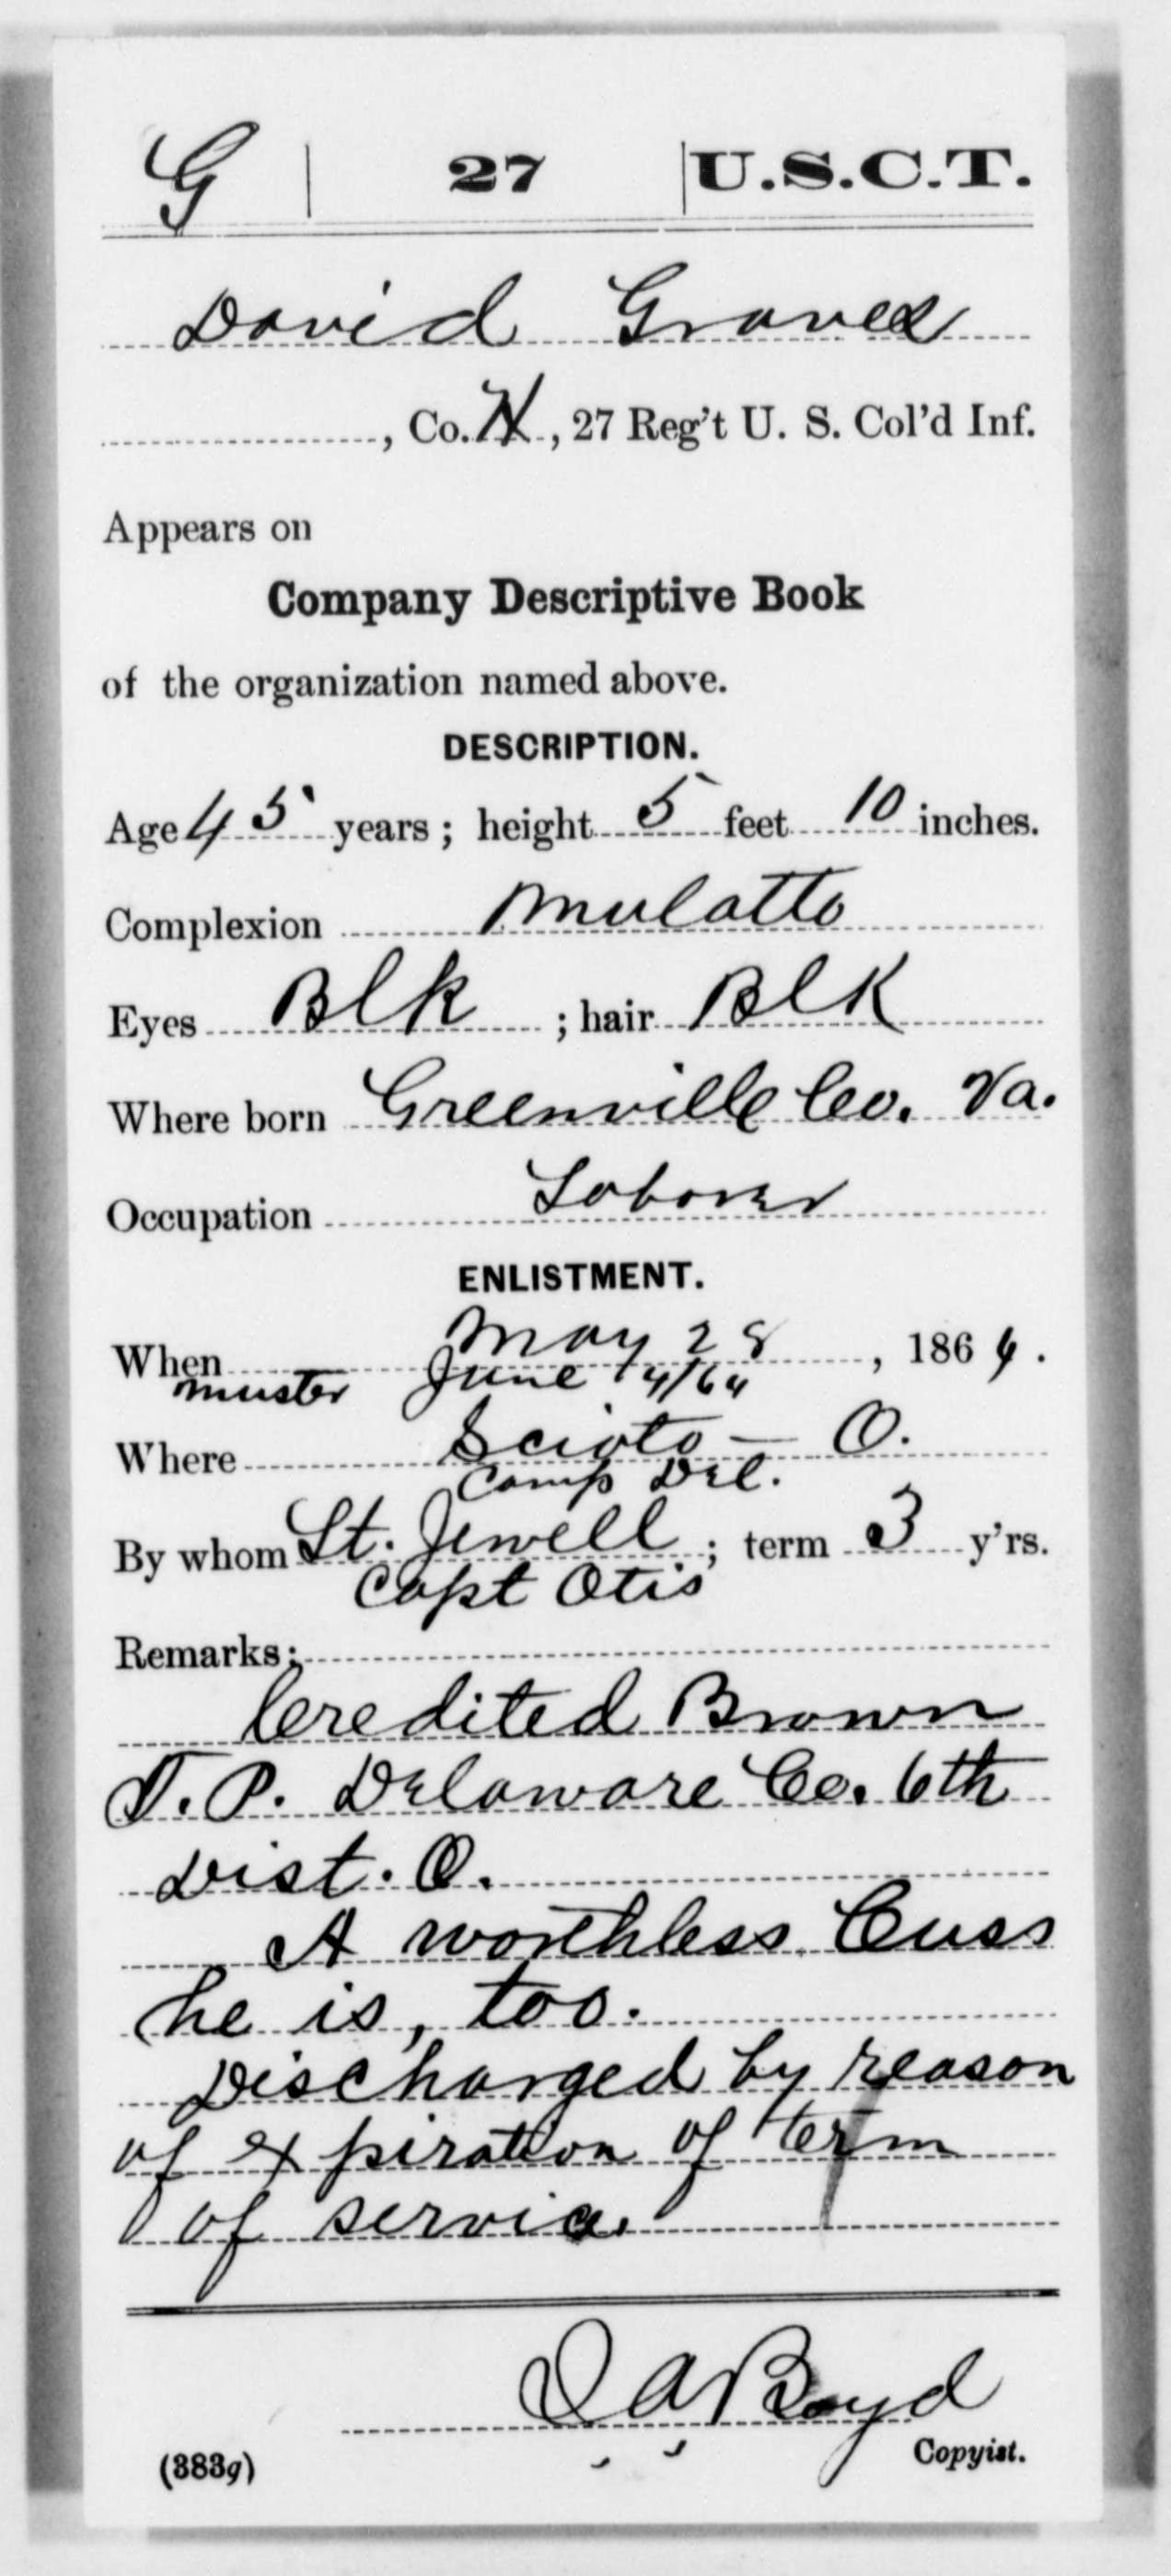 G | 27 | U.S.C.T.
David Graves
, Co. H, 27 Reg't U. S. Col'd Inf.
Appears on
Company Descriptive Book
of the organization named above.
DESCRIPTION.
Age 45 years; height 5 feet 10 inches.
Complexion Mulatto
Eyes Blk; hair Blk
Where born Greenville Co. Va.
Occupation Laborer
ENLISTMENT.
When May 28, 1864.
muster June 14/64
Where Scioto – O.
Camp Del.
By whom Lt. Jewell; term 3 y'rs.
Capt Otis
Remarks:
Credited Brown
T.P. Delaware Co. 6th
Dist. O.
A worthless Cuss
he is, too.
Discharged by reason
of expiration of term
of service.
Boyd
Copyist.
(383g)